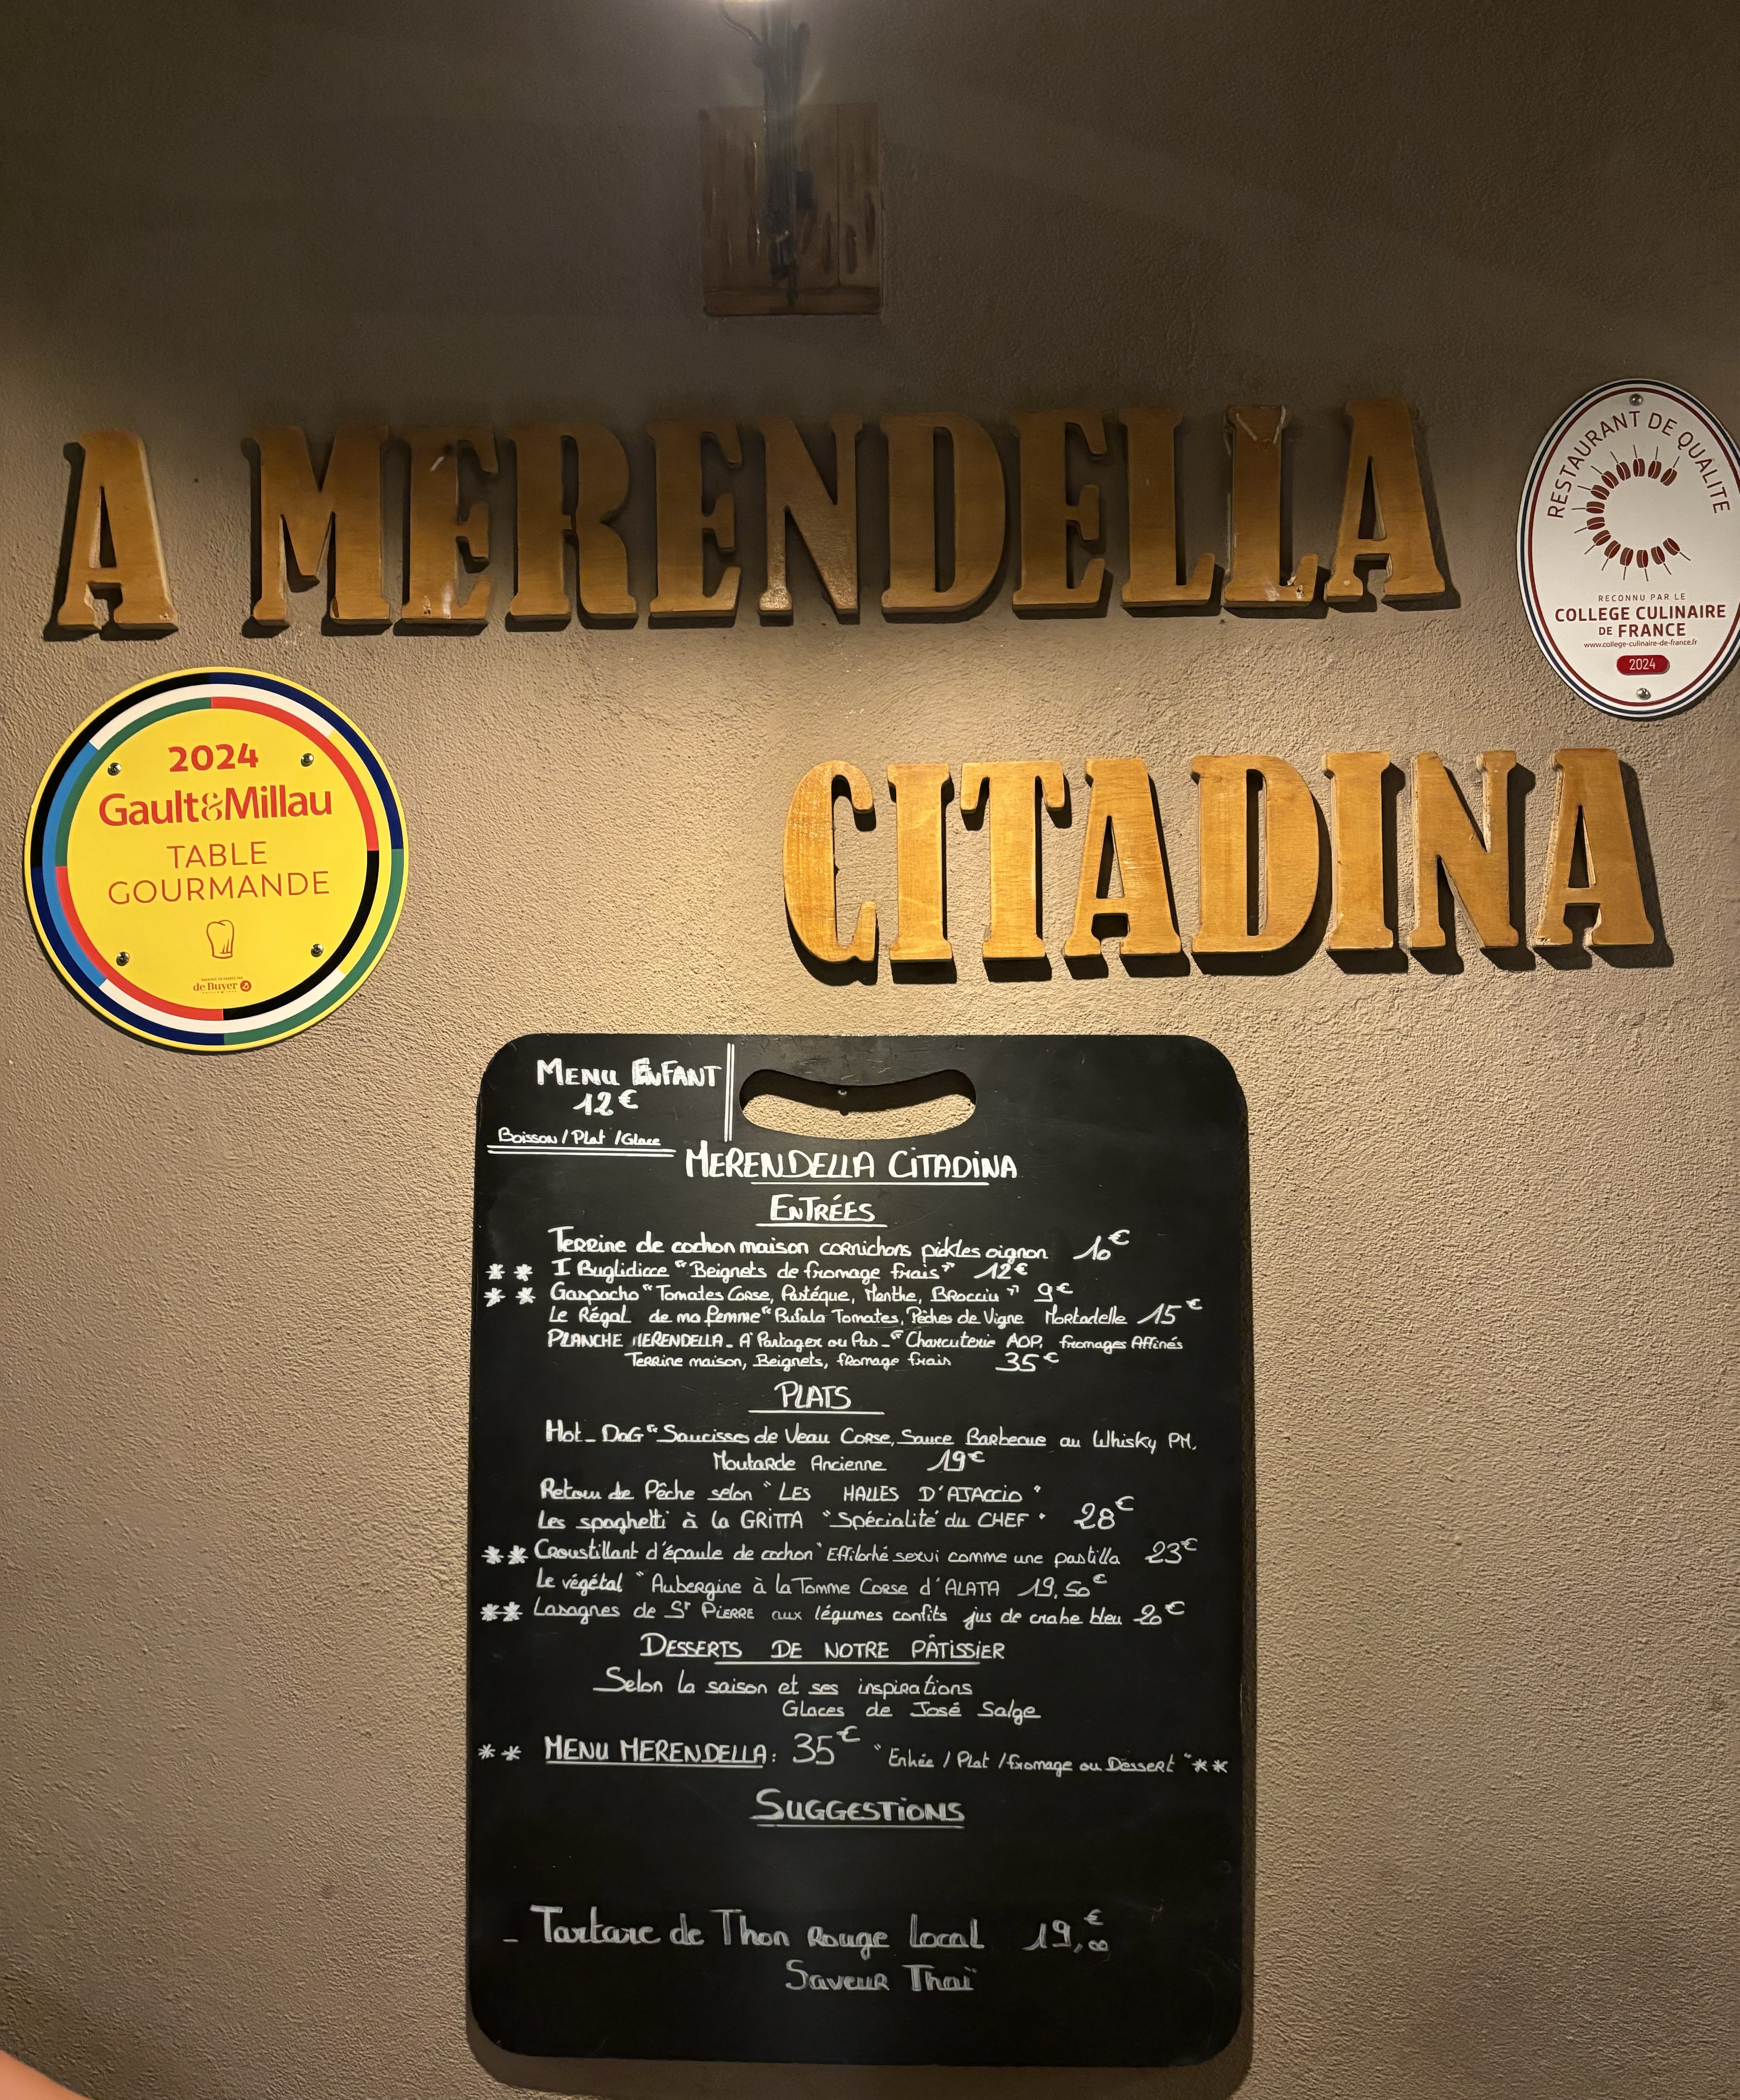 A MERENDELLA
CITADINA
RESTAURANT DE QUALITE
RECONNU PAR LE
COLLEGE CULINAIRE
DE FRANCE
www.college-culinaire-de-france.fr
2024
2024
Gault&Millau
TABLE
GOURMANDE
de Buyer
MENU ENFANT
12€
Boisson / Plat / Glace
MERENDELLA CITADINA
ENTRÉES
Terrine de cochon maison cornichons pickles oignon 10€
** I Buglidicce "Beignets de fromage frais" 12€
** Gaspacho "Tomates Corse, Pastéque, Menthe, Brocciu" 9€
Le Régal de ma femme "Bufala Tomates, Pêches de Vigne Mortadelle 15€
PLANCHE MERENDELLA - A Partager ou Pas - "Charcuterie AOP, fromages Affinés
Terrine maison, Beignets, fromage frais 35€
PLATS
Hot-Dog "Saucisse de Veau Corse, Sauce Barbecue au Whisky PM,
Moutarde Ancienne 19€
Retour de Pêche selon "LES HALLES D'AJACCIO"
Les spaghetti à la GRITTA "Spécialité du CHEF" 28€
** Croustillant d'épaule de cochon "Effiloché servi comme une pastilla 23€
Le végétal "Aubergine à la Tomme Corse d'ALATA 19,50€
** Lasagnes de St PIERRE aux légumes confits jus de crabe bleu 20€
DESSERTS DE NOTRE PÂTISSIER
Selon la saison et ses inspirations
Glaces de José Salge
** MENU MERENDELLA: 35€ "Entrée / Plat / fromage ou Dessert" **
SUGGESTIONS
- Tartare de Thon Rouge Local 19,00€
Saveur Thaï